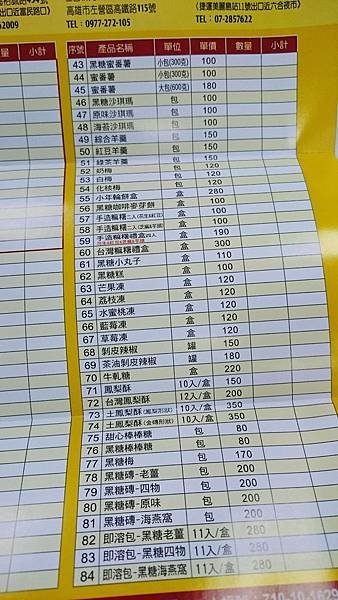 高雄市左營區高鐵路115號
TEL：0977-272-105
TEL：07-2857622
小計
序號 產品名稱 單位 單價 數量 小計
43 黑糖蜜番薯 小包(300克) 100
44 蜜番薯 小包(300克) 100
45 蜜番薯 大包(600克) 180
46 黑糖沙琪瑪 包 100
47 原味沙琪瑪 包 100
48 海苔沙琪瑪 包 100
49 綜合羊羹 包 150
50 紅豆羊羹 包 150
51 綠茶羊羹 包 150
52 奶梅 包 120
53 白梅 包 120
54 化核梅 包 120
55 小年輪餅 盒 280
56 黑糖咖啡麥芽餅 盒 100
57 手造麻糬二入 盒 100
58 手造麻糬二入 盒 100
59 手造麻糬禮盒四入 盒 190
60 台灣麻糬禮盒 盒 300
61 黑糖小丸子 盒 110
62 黑糖糕 盒 100
63 芒果凍 盒 120
64 荔枝凍 盒 120
65 水蜜桃凍 盒 120
66 藍莓凍 盒 120
67 草莓凍 盒 120
68 剝皮辣椒 罐 150
69 茶油剝皮辣椒 罐 180
70 牛軋糖 盒 220
71 鳳梨酥 10入/盒 150
72 台灣鳳梨酥 12入/盒 200
73 土鳳梨酥(鳳梨形狀) 10入/盒 350
74 土鳳梨酥(金磚形狀) 10入/盒 350
75 甜心棒棒糖 包 80
76 黑糖棒棒糖 包 80
77 黑糖梅 包 170
78 黑糖磚-老薑 包 200
79 黑糖磚-四物 包 200
80 黑糖磚-原味 包 200
81 黑糖磚-海燕窩 包 200
82 即溶包-黑糖老薑 11入/盒 280
83 即溶包-黑糖四物 11入/盒 280
84 即溶包-黑糖海燕窩 11入/盒 280